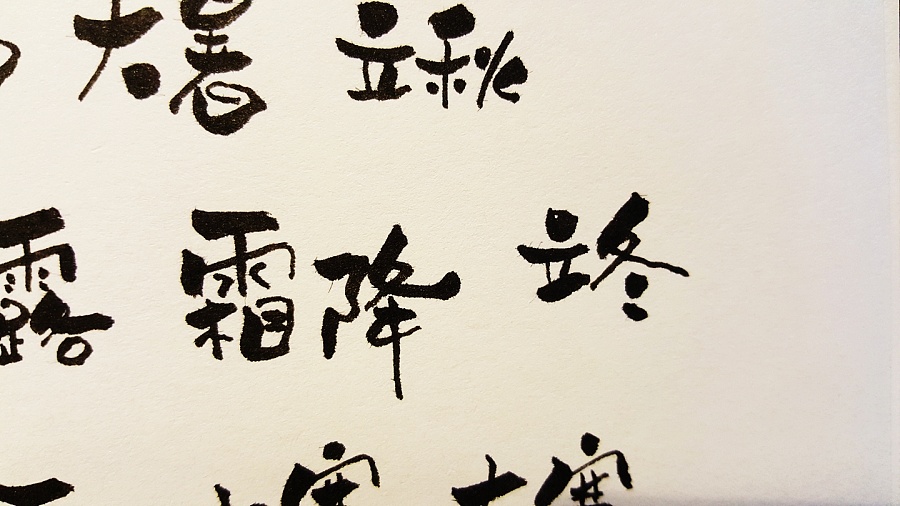 大暑 立秋
露 霜降 立冬
小寒 大寒